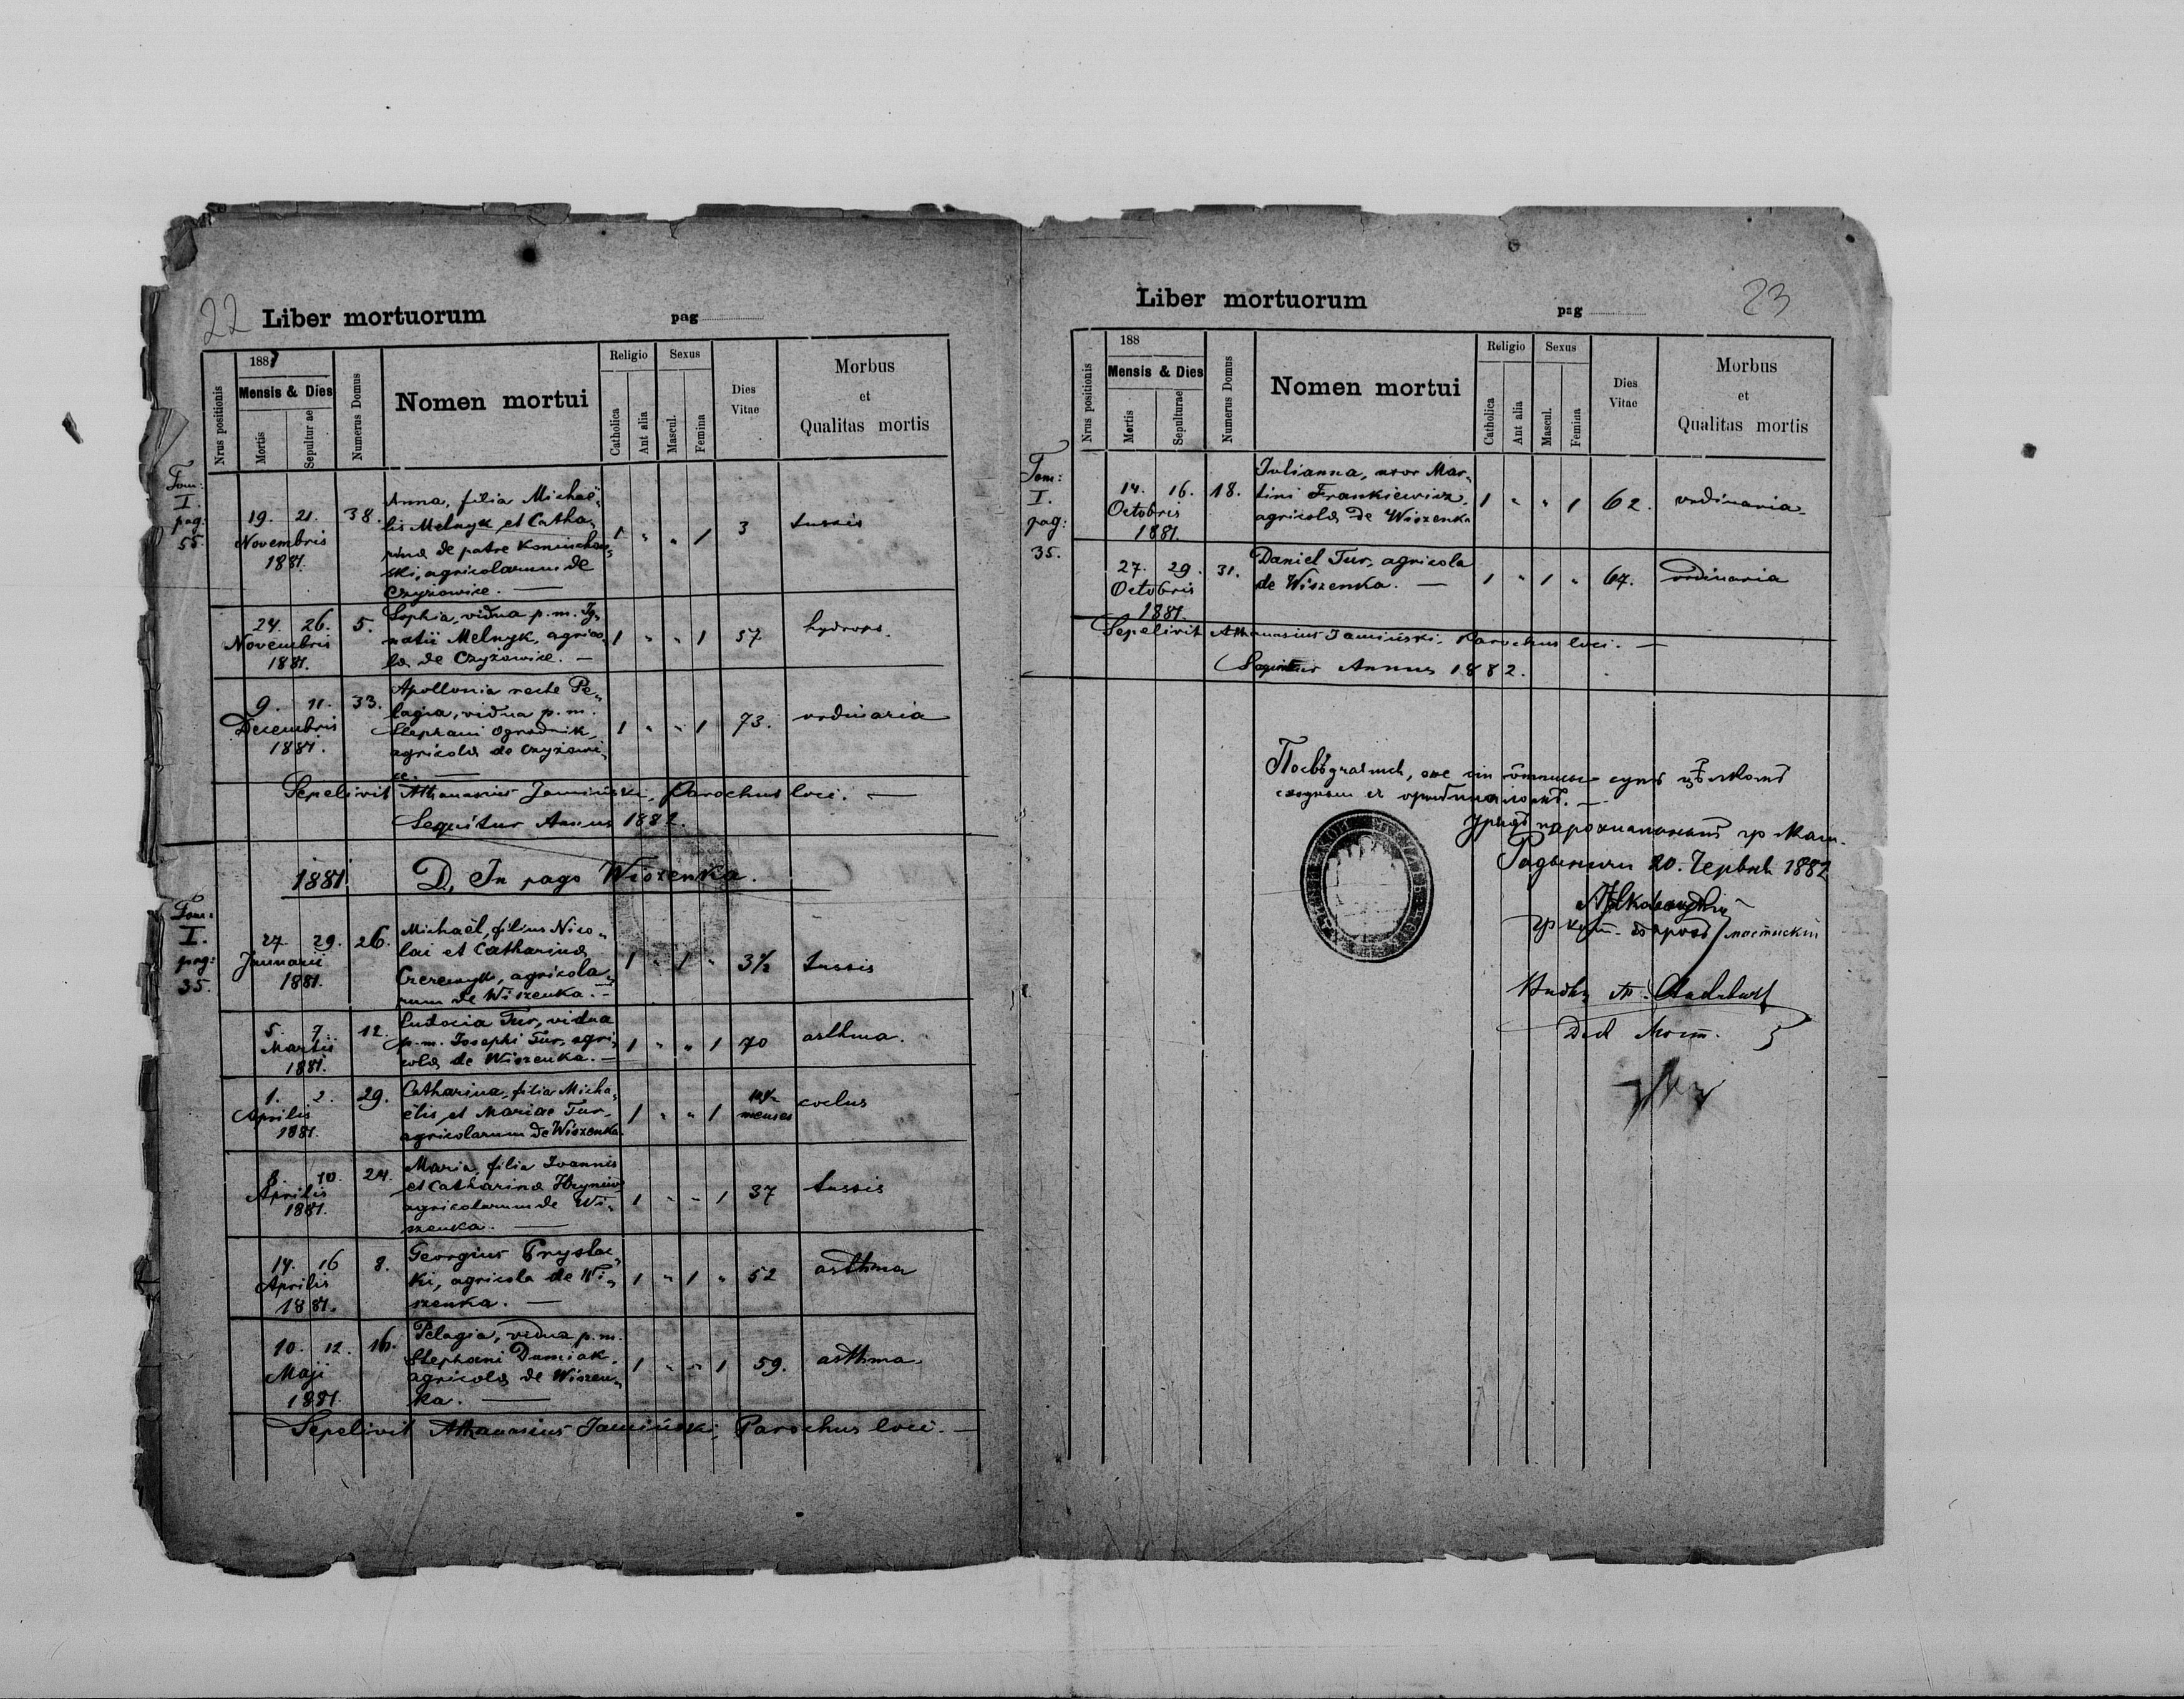 22
Liber mortuorum pag
Nrus positionis
1881
Mensis & Dies
Mortis
Sepulturae
Numerus Domus
Nomen mortui
Religio
Catholica
Aut alia
Sexus
Mascul.
Femina
Dies
Vitae
Morbus
et
Qualitas mortis
Tom:
I.
pag:
55.
19. 21.
Novembris
1881.
38.
Anna, filia Michaë„
lis Melnyk et Catha„
rina de patre
ski, agricolarum de
Czyżowice. —
1 " " 1
3
tussis
24. 26.
Novembris
1881.
5.
Sophia, vidua p. m. Ig„
natii Melnyk, agrico„
la de Czyżowice. —
1 " " 1
57
hydrops.
9. 11.
Decembris
1881.
33.
Apollonia recte Pe„
lagia, vidua p. m.
Stephani Ogrodnik,
agricola de Czyżowi„
ce. —
1 " " 1
73.
ordinaria
Sepelivit Athanasius Jamiński, Parochus loci. —
Sequitur Annus 1882.
1881. D, In pago Wiszenka.
Tom:
I.
pag:
35.
27 29.
Januarii
1881.
26.
Michaël, filius Nico„
lai et Catharina
Czeremyk, agricola„
rum de Wiszenka. —
1 " 1 "
3½
tussis
5. 7.
Martii
1881.
12.
Eudocia Tur, vidua
p. m. Josephi Tur, agri„
cola de Wiszenka. —
1 " " 1
70
asthma.
1. 2.
Aprilis
1881.
29.
Catharina, filia Micha„
ëlis et Mariae Tur,
agricolarum de Wiszenka.
1 " " 1
menses
8. 10.
Aprilis
1881.
24.
Maria, filia Ioannis
et Catharina
agricolarum de Wi„
szenka. —
1 " " 1
37
tussis
14. 16
Aprilis
1881.
8.
Georgius Prystac„
ki, agricola de Wi„
szenka. —
1 " 1 "
52
asthma
10. 12.
Maji
1881.
16.
Pelagia, vidua p. m.
Stephani Dumiak,
agricola de Wiszen„
ka. —
1 " " 1
59.
asthma.
Sepelivit Athanasius Jamiński, Parochus loci. —
23
Liber mortuorum pag
Nrus positionis
188
Mensis & Dies
Mortis
Sepulturae
Numerus Domus
Nomen mortui
Religio
Catholica
Aut alia
Sexus
Mascul.
Femina
Dies
Vitae
Morbus
et
Qualitas mortis
Tom:
I.
pag:
35.
14. 16.
Octobris
1881.
18.
Julianna, uxor Mar„
tini Frankiewicz,
agricola de Wiszenka
1 " " 1
62.
ordinaria.
27. 29.
Octobris
1881.
31.
Daniel Tur, agricola
de Wiszenka. —
1 " 1 "
67.
ordinaria
Sepelivit Athanasius Jamiński, Parochus loci. —
Sequitur Annus 1882.
суть цѣлкомъ
съ оригиналомъ. —
гр кат.
20. Червня 1882